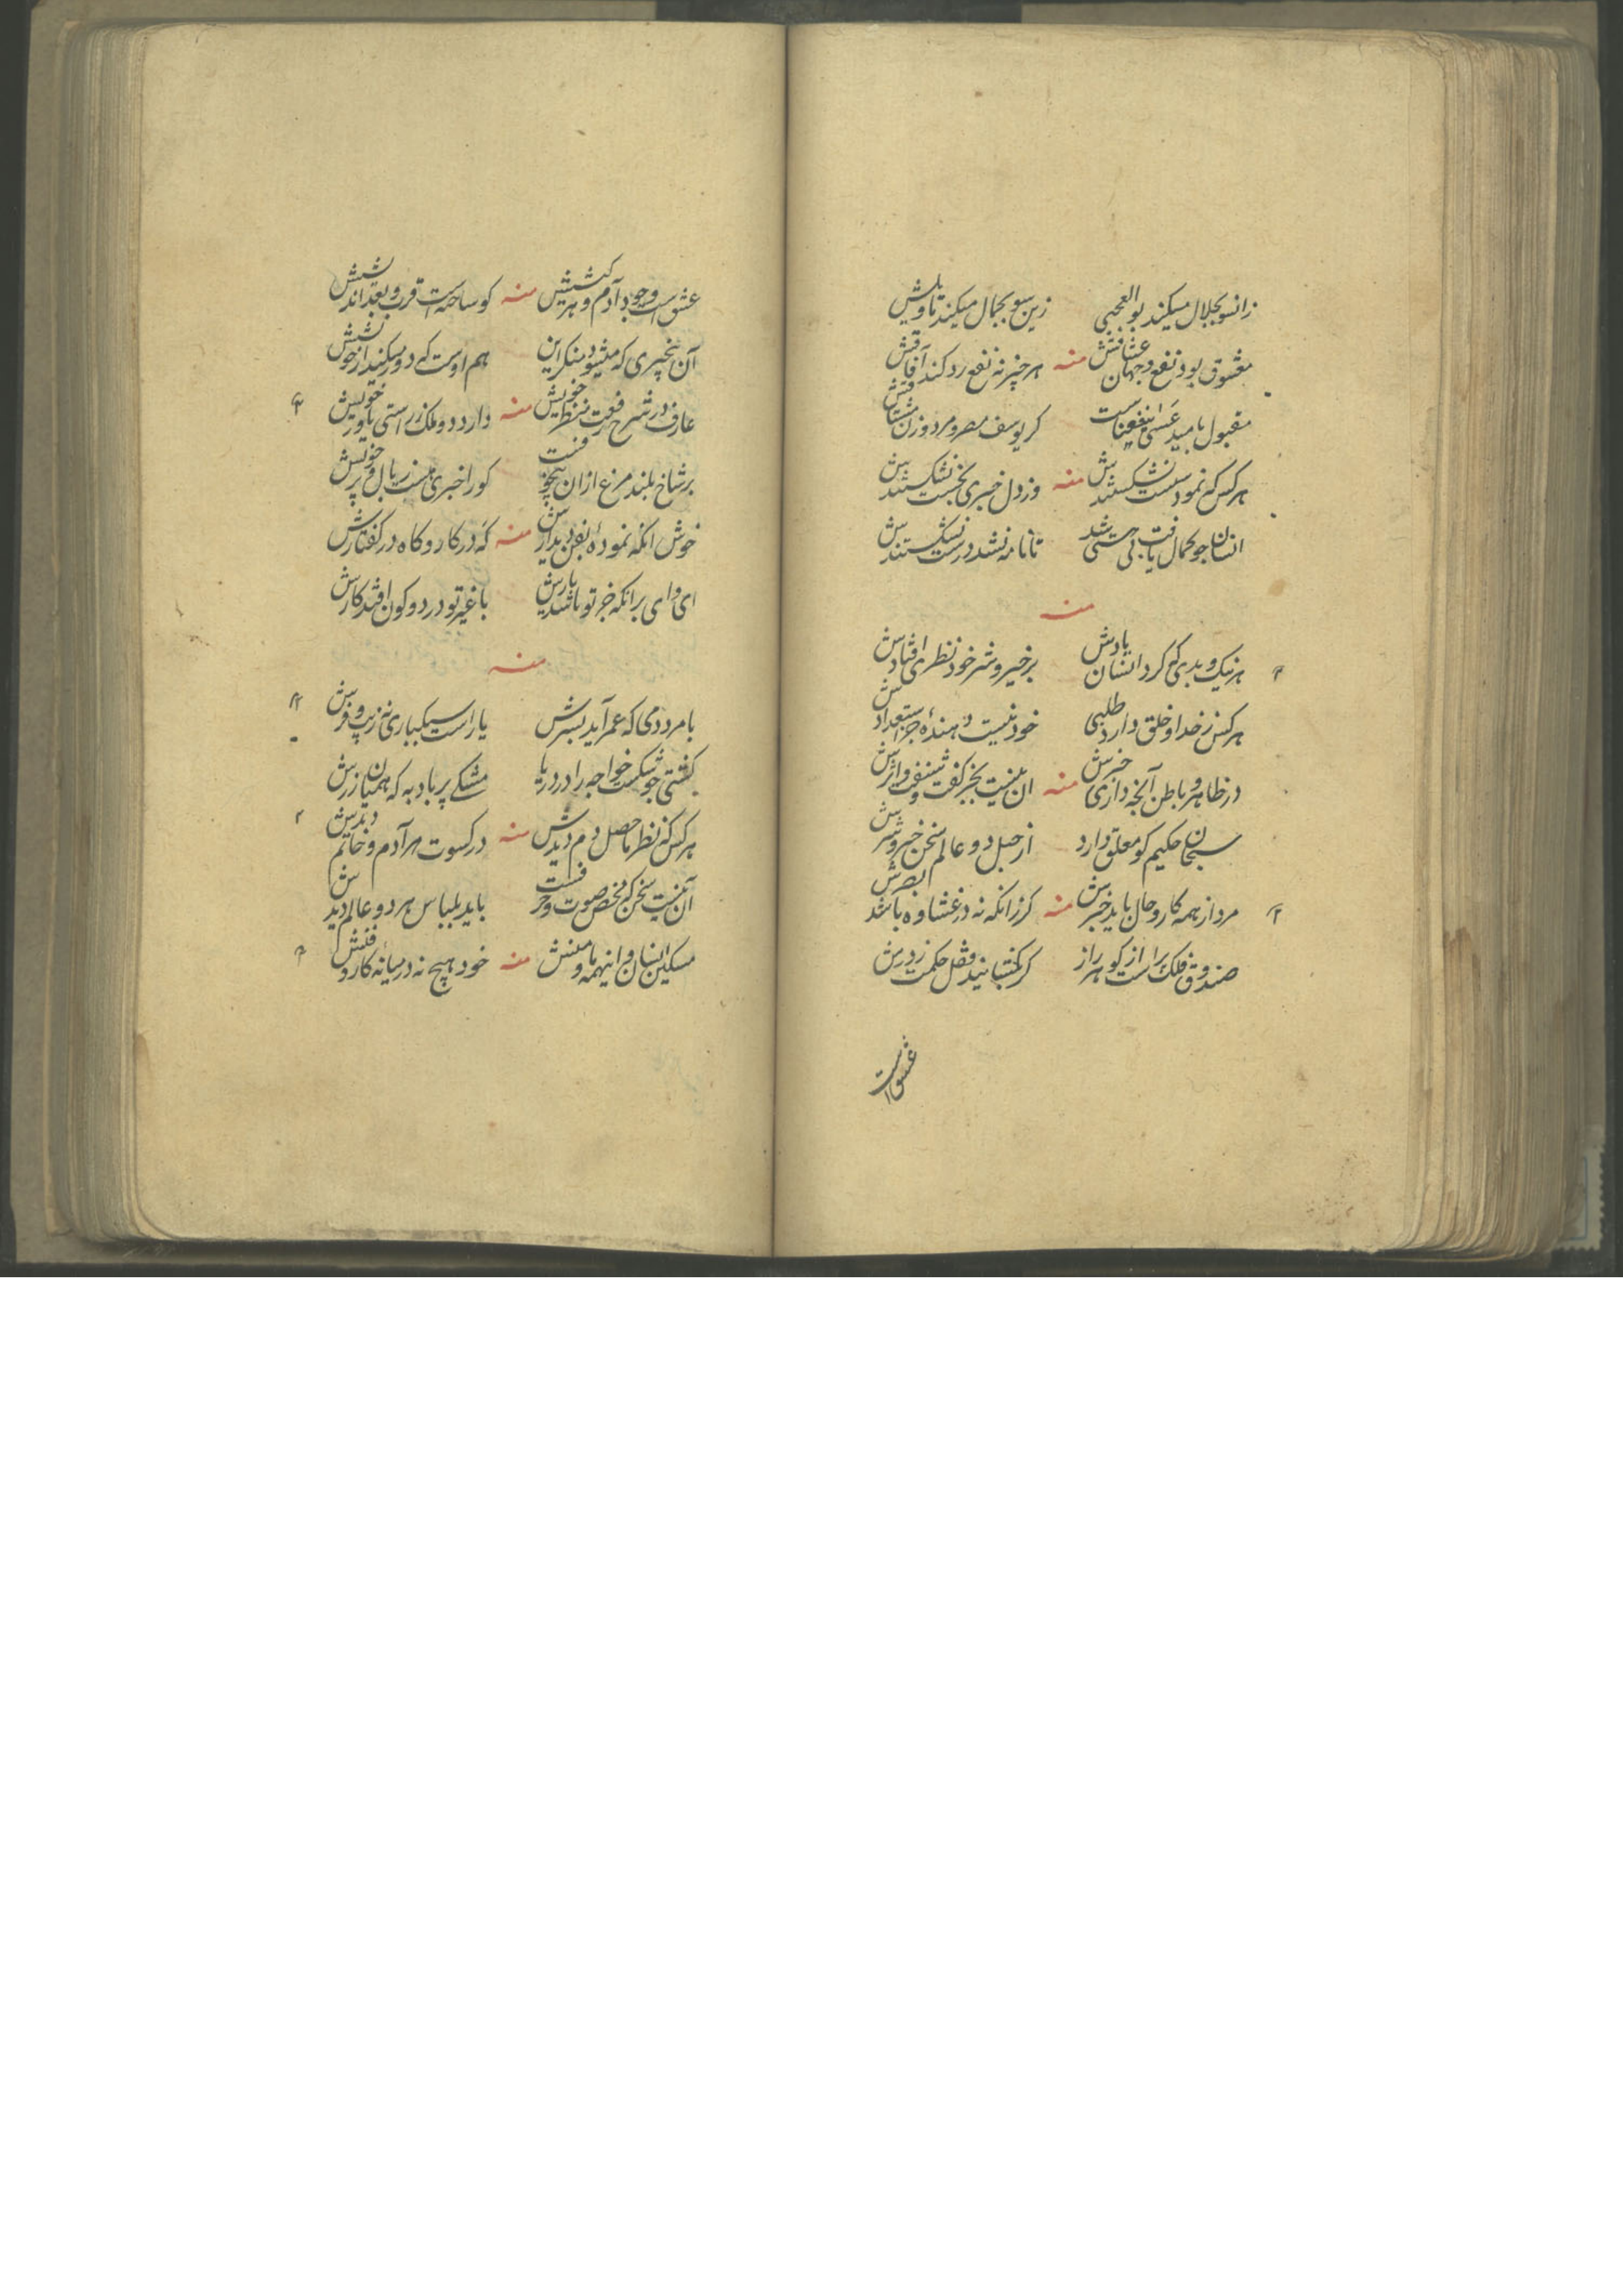 زانسو بجلال میکند بوالعجبی زین سو بجمال میکند تاویلش
معشوق بود نفع دو جهان عشاقش منه هر چیز نه نفع رد کند آفاقش
مقبول بامید عسی ینفعناست کر یوسف مصر و مرد و زن مشتاقش
هر کس که نمود سست نشکستندش منه وز دل خبری بجست نشکستندش
انسان چو کمال یافت شد تا نامه نشد درست نشکستندش
منه
هر نیک و بدی که کرد انسان یادش بر خیر و شر خود نظری افتادش
هر کس ز خدا و خلق دارد طلبی خود نیست دهنده جز استعدادش
در ظاهر و باطن آنچه داری خبرش منه ان نیست بجز گفت و شنفت
سبحان حکیم کو معلق دارد از حبل دو عالم سخن خیر و شرش
مرد از همه کار و حال باید خبرش منه کر زانکه نه در غشاوه باشد بصرش
صندوق فلک راست از کوهر راز کر بکشایند قفل حکمت ز درش
عشق است
عشق است وجود آدم و هر کششش منه کو ساخته است قرب و بعد
آن بیخبری که میشود منکر این هم اوست که دور میکند از خودشش
عارف در شرح رفعت منظر خویش منه دارد دو ملک ز راستی یاور خویش
بر شاخ بلند مرغ ازان بیخوفست کورا خبری هست ز بال و پر خویش
خوش انکه نموده بفن دیدارش منه که در کار و کاه در کفتارش
ای وای برانکه جز تو باشد یارش با غیر تو در دو کون افتد کارش
منه
با مرد دمی که عمر آید بسرش یار است سبکباری نه زیب و فرش
کشتی چو شکست خواجه را در دریا مشکے پر باد به که همیان زرش
هر کس که نظر حاصل دم دیدش منه در کسوت هر آدم و خاتم دیدش
آن نیست سخن که مخصوص صوت و حرفست باید بلباس هر دو عالم دیدش
مسکین انسان و اینهمه ما و منش منه خود هیچ نه در میانه کار و فنش